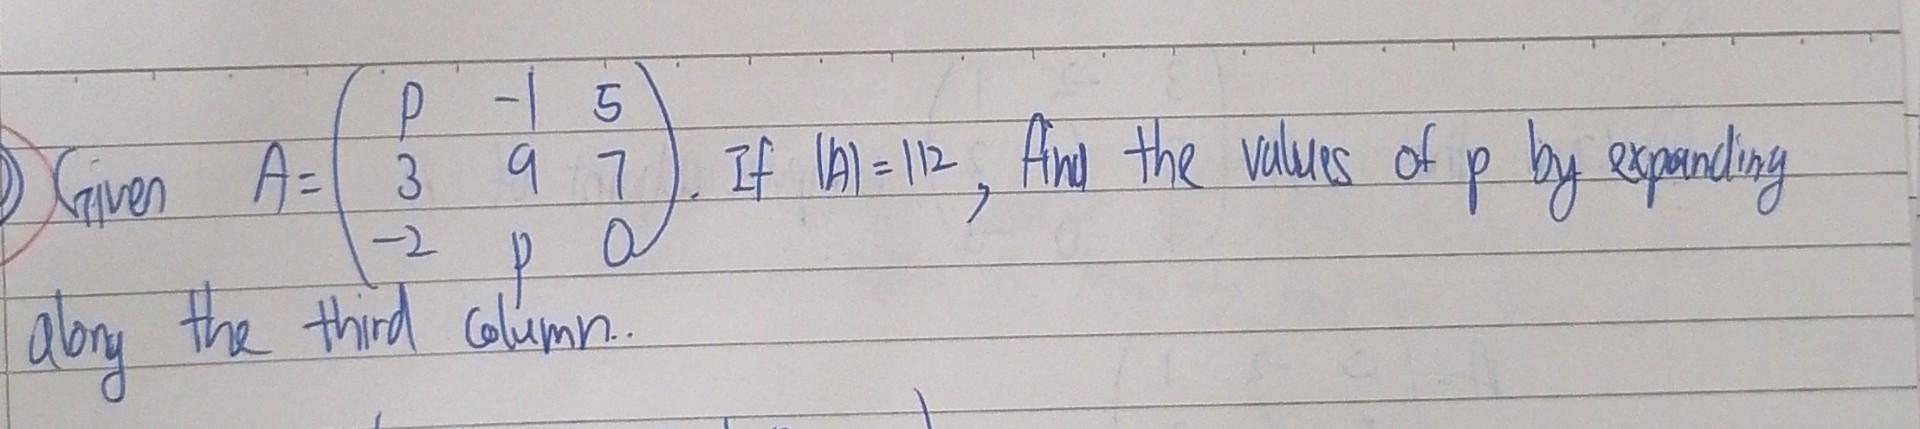 p -1 5
Given A= 3 9 7 . If |A|=112, find the values of p by expanding
-2 p 0
along the third column..